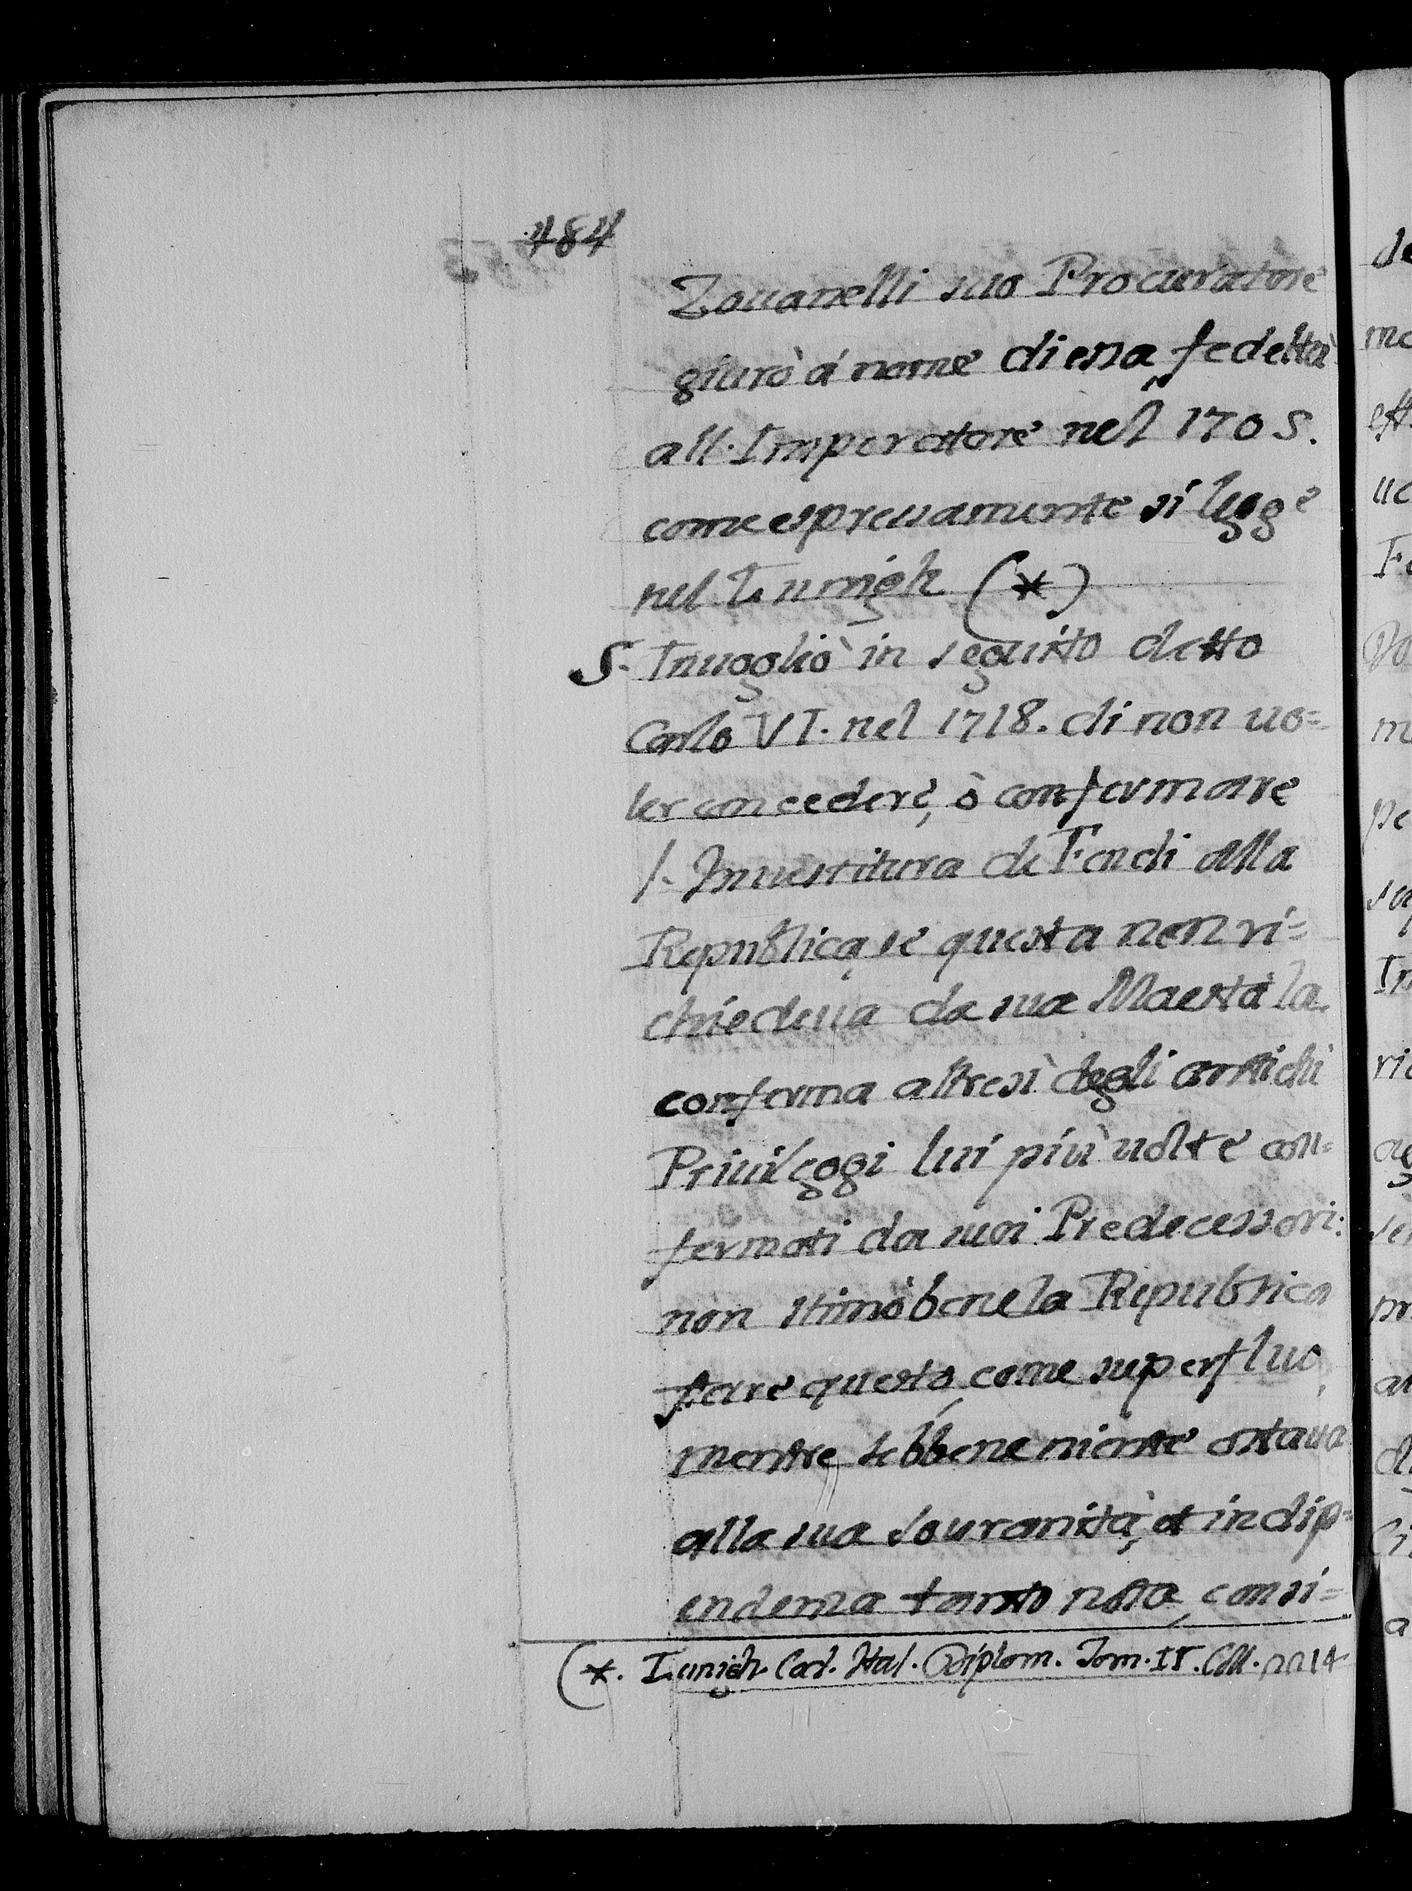 484
Zouanelli suo Procuratore
giurò á nome di essa fedeltà
all. Imperatore nel 1705.
come espressamente si legge
nel Lunigh (*)
S. Inuogliò in seguito detto
Carlo VI. nel 1718. di non uo=
ler concedere, ò confermare
l. Inuestitura de Feudi alla
Republica, se questa non ri=
chiedeua da sua Maestà la
conferma altresì degli antichi
Priuileggi lui più uolte con=
fermati da suoi Predecessori:
non stimò bene la Republica
fare questo, come superfluo,
mentre sebbene niente ostaua
alla sua Souranità, et indip=
endenza tanto nota, consi=
(*. Lunigh. Cod. Ital. Diplom. Tom. II. Coll. 2214